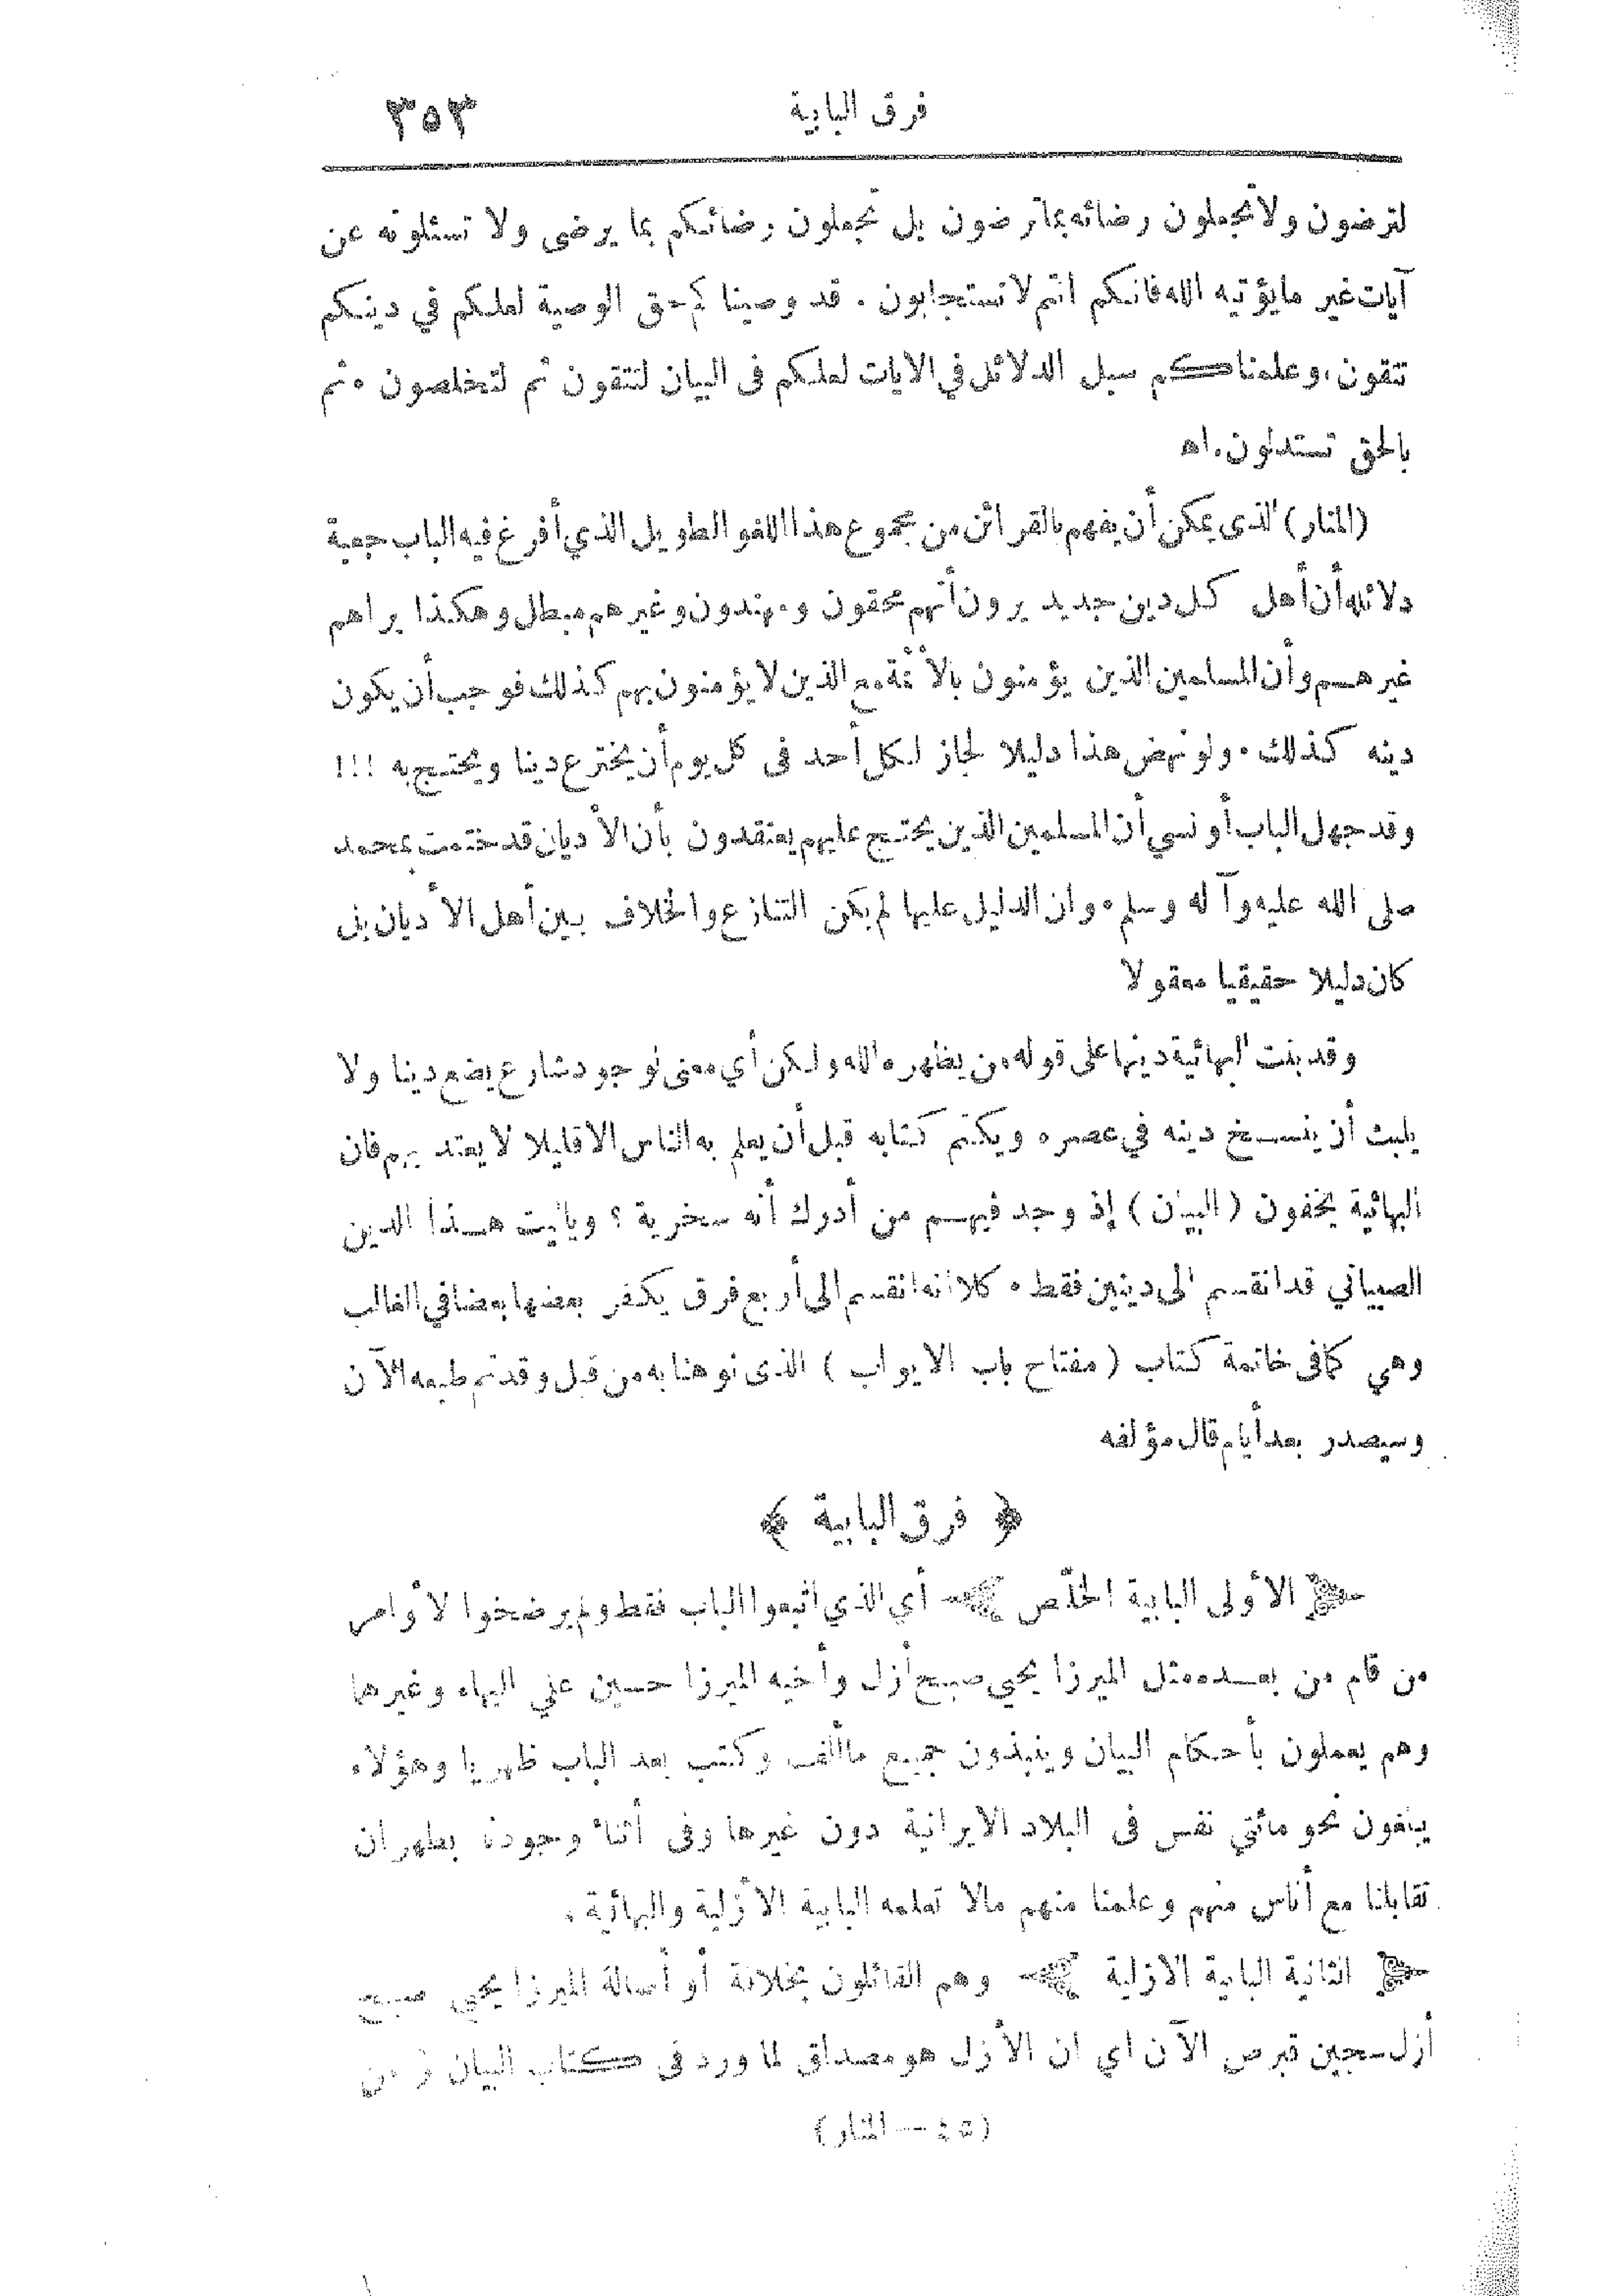 فرق البابية ٣٥٣
لترضون ولا تجعلون رضائه بما ترضون بل تجعلون رضائكم بما يرضى ولا تسئلونه عن
آيات غير ما يؤتيه الله فانكم انتم لا تستجابون . قد وصينا كم حق الوصية لعلكم في دينكم
تتقون، وعلمناكم سبل الدلائل في الايات لعلكم في البيان لتتقون ثم لتخلصون . ثم
بالحق تستدلون . اه
(المنار) الذى يمكن أن يفهم بالقرائن من مجموع هذا اللغو الطويل الذي أفرغ فيه الباب جعبة
دلائله أن أهل كل دين جديد يرون أنهم محقون ومهتدون وغيرهم مبطل وهكذا يراهم
غيرهم وأن المسلمين الذين يؤمنون بالأئمة مع الذين لا يؤمنون بهم كذلك فوجب أن يكون
دينه كذلك . ولو نهض هذا دليلا لجاز لكل أحد فى كل يوم أن يخترع دينا ويحتج به !!!
وقد جهل الباب أو نسي أن المسلمين الذين يحتج عليهم يعتقدون بأن الأديان قد ختمت بمحمد
صلى الله عليه وآله وسلم . وان الدليل عليها لم يكن التنازع والخلاف بين أهل الأديان بل
كان دليلا حقيقيا معقولا
وقد بنت البهائية دينها على قوله من يظهره الله ولكن أي معنى لوجود شارع يضع دينا ولا
يلبث أن ينسخ دينه في عصره ويكتم كتابه قبل أن يعلم به الناس الا قليلا لا يعتد بهم فان
البهائية يخفون (البيان) إذ وجد فيهم من أدرك أنه سخرية ؟ وياليت هذا الدين
الصبياني قد انقسم الى دينين فقط . كلا انه انقسم الى أربع فرق يكفر بعضها بعضا في الغالب
وهي كما فى خاتمة كتاب (مفتاح باب الابواب) الذى نوهنا به من قبل وقد تم طبعه الآن
وسيصدر بعد أيام قال مؤلفه
﴿ فرق البابية ﴾
الأولى البابية الخلّص أي الذي اتبعوا الباب فقط ولم يرضخوا لأوامر
من قام من بعده مثل الميرزا يحيى صبح أزل وأخيه الميرزا حسين علي البهاء وغيرها
وهم يعملون بأحكام البيان وينبذون جميع ما ألف وكتب بعد الباب ظهريا وهؤلاء
يبلغون نحو مائتي نفس فى البلاد الايرانية دون غيرها وفى أثناء وجودنا بطهران
تقابلنا مع أناس منهم وعلمنا منهم مالا تعلمه البابية الأزلية والبهائية .
الثانية البابية الازلية وهم القائلون بخلافة أو أصالة الميرزا يحيى صبح
أزل سجين قبرص الآن اي ان الأزل هو مصداق لما ورد فى كتاب البيان من
(٤٥ — المنار)